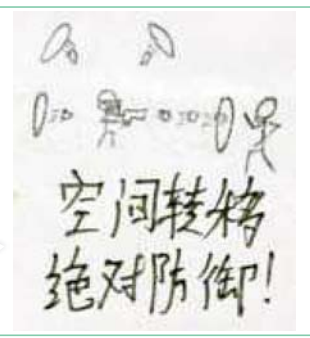 空间转移
绝对防御!